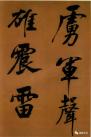 虏軍聲
雄震雷